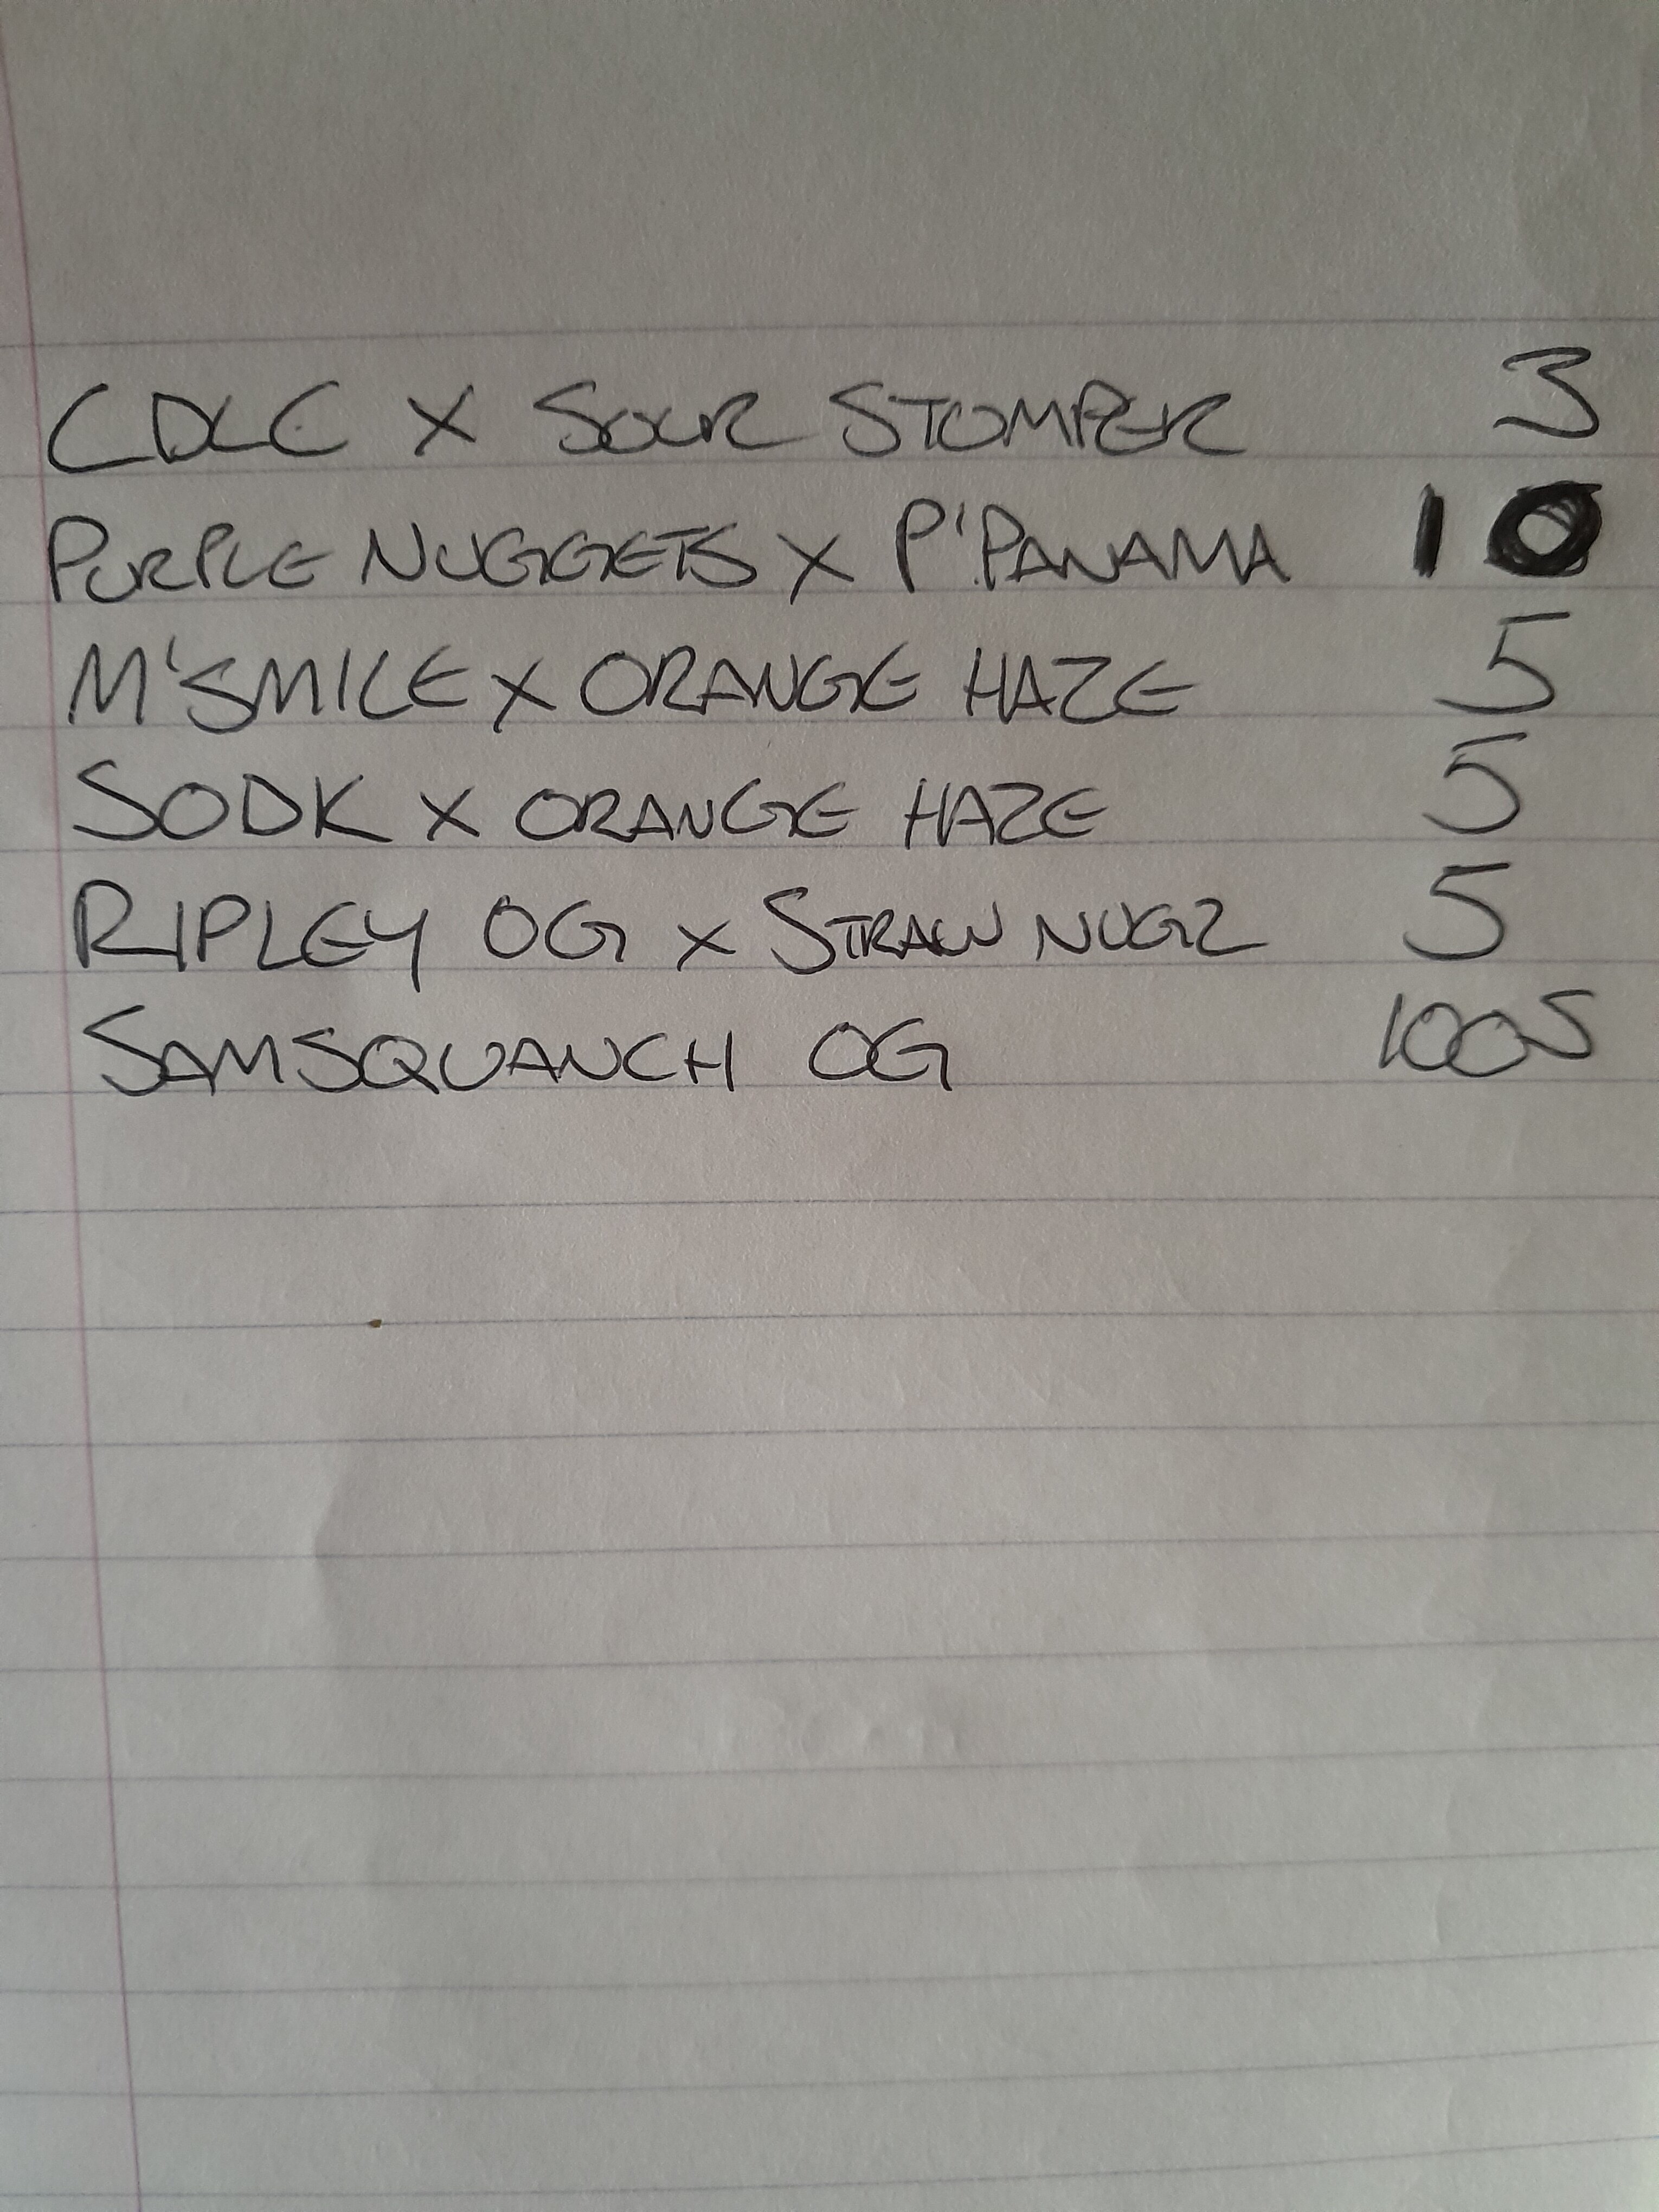 CDLC X SOUR STOMPER 3
PURPLE NUGGETS X P'PANAMA 10
M'SMILE X ORANGE HAZE 5
SODK X ORANGE HAZE 5
RIPLEY OG X STRAW NUGZ 5
SAMSQUANCH OG 100S